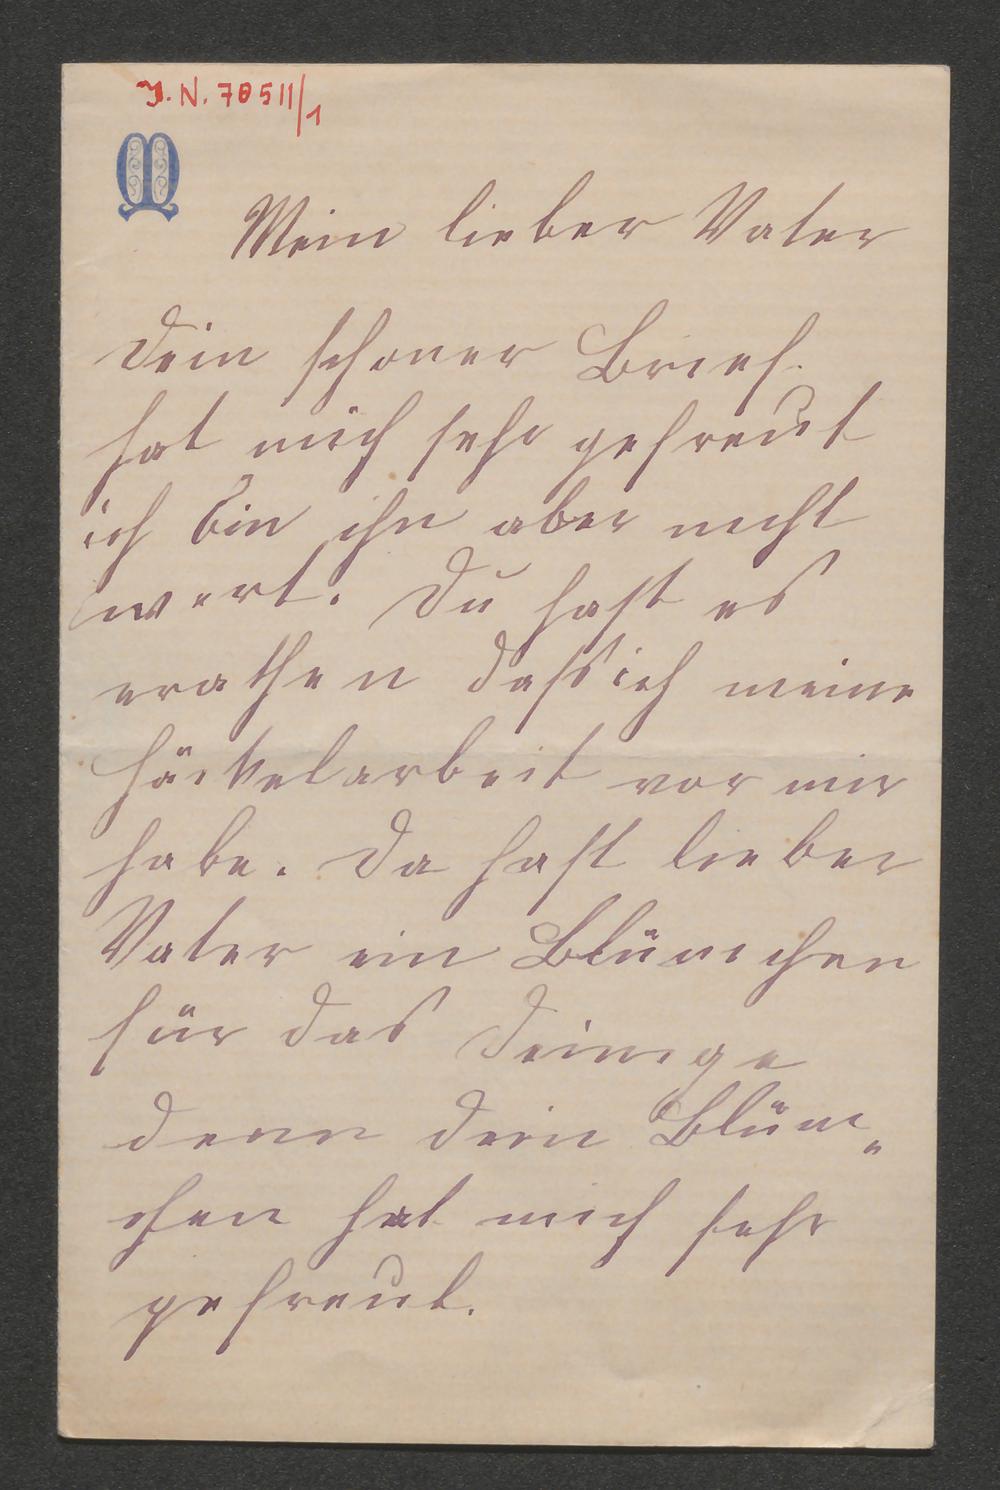 J. N. 70511/1
M
Mein lieber Vater
Dein schoner Brief
hat mich sehr gefreut
ich bin ihn aber nicht
wert. Du hast es
erathen dass ich meine
Häckelarbeit vor mir
habe. Da hast lieber
Vater ein Blümchen
für das Deinige
denn dein Blüm„
chen hat mich sehr
gefreut.